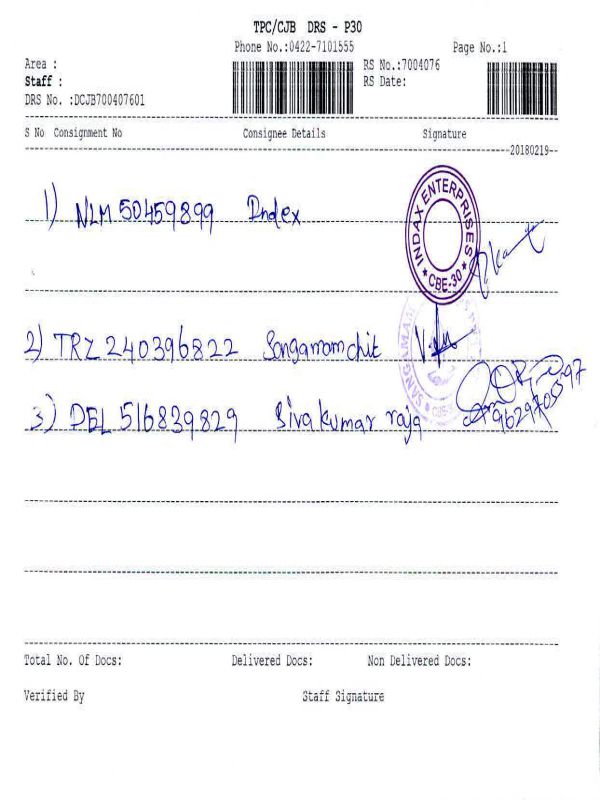 TPC/CJB DRS - P30
Phone No.:0422-7101555 Page No.:1
Area : RS No.:7004076
Staff : RS Date:
DRS No. :DCJB700407601
S No Consignment No Consignee Details Signature
20180219
1) NLM 50459899 Index
INDAX ENTERPRISES
CBE-30
2) TRZ 240396822 Sangamamchit
SANGAMAM
3) DEL 516839829 Sivakumar raja
Total No. Of Docs: Delivered Docs: Non Delivered Docs:
Verified By Staff Signature